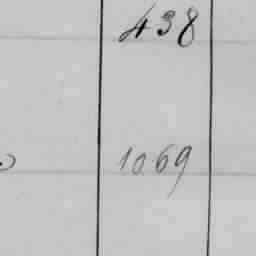 438
1069